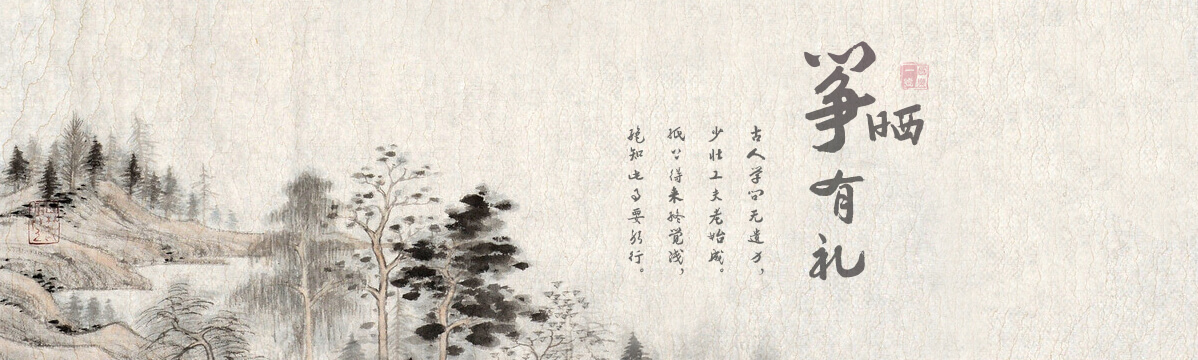 晒
筝有礼
古人学问无遗力，
少壮工夫老始成。
纸上得来终觉浅，
绝知此事要躬行。